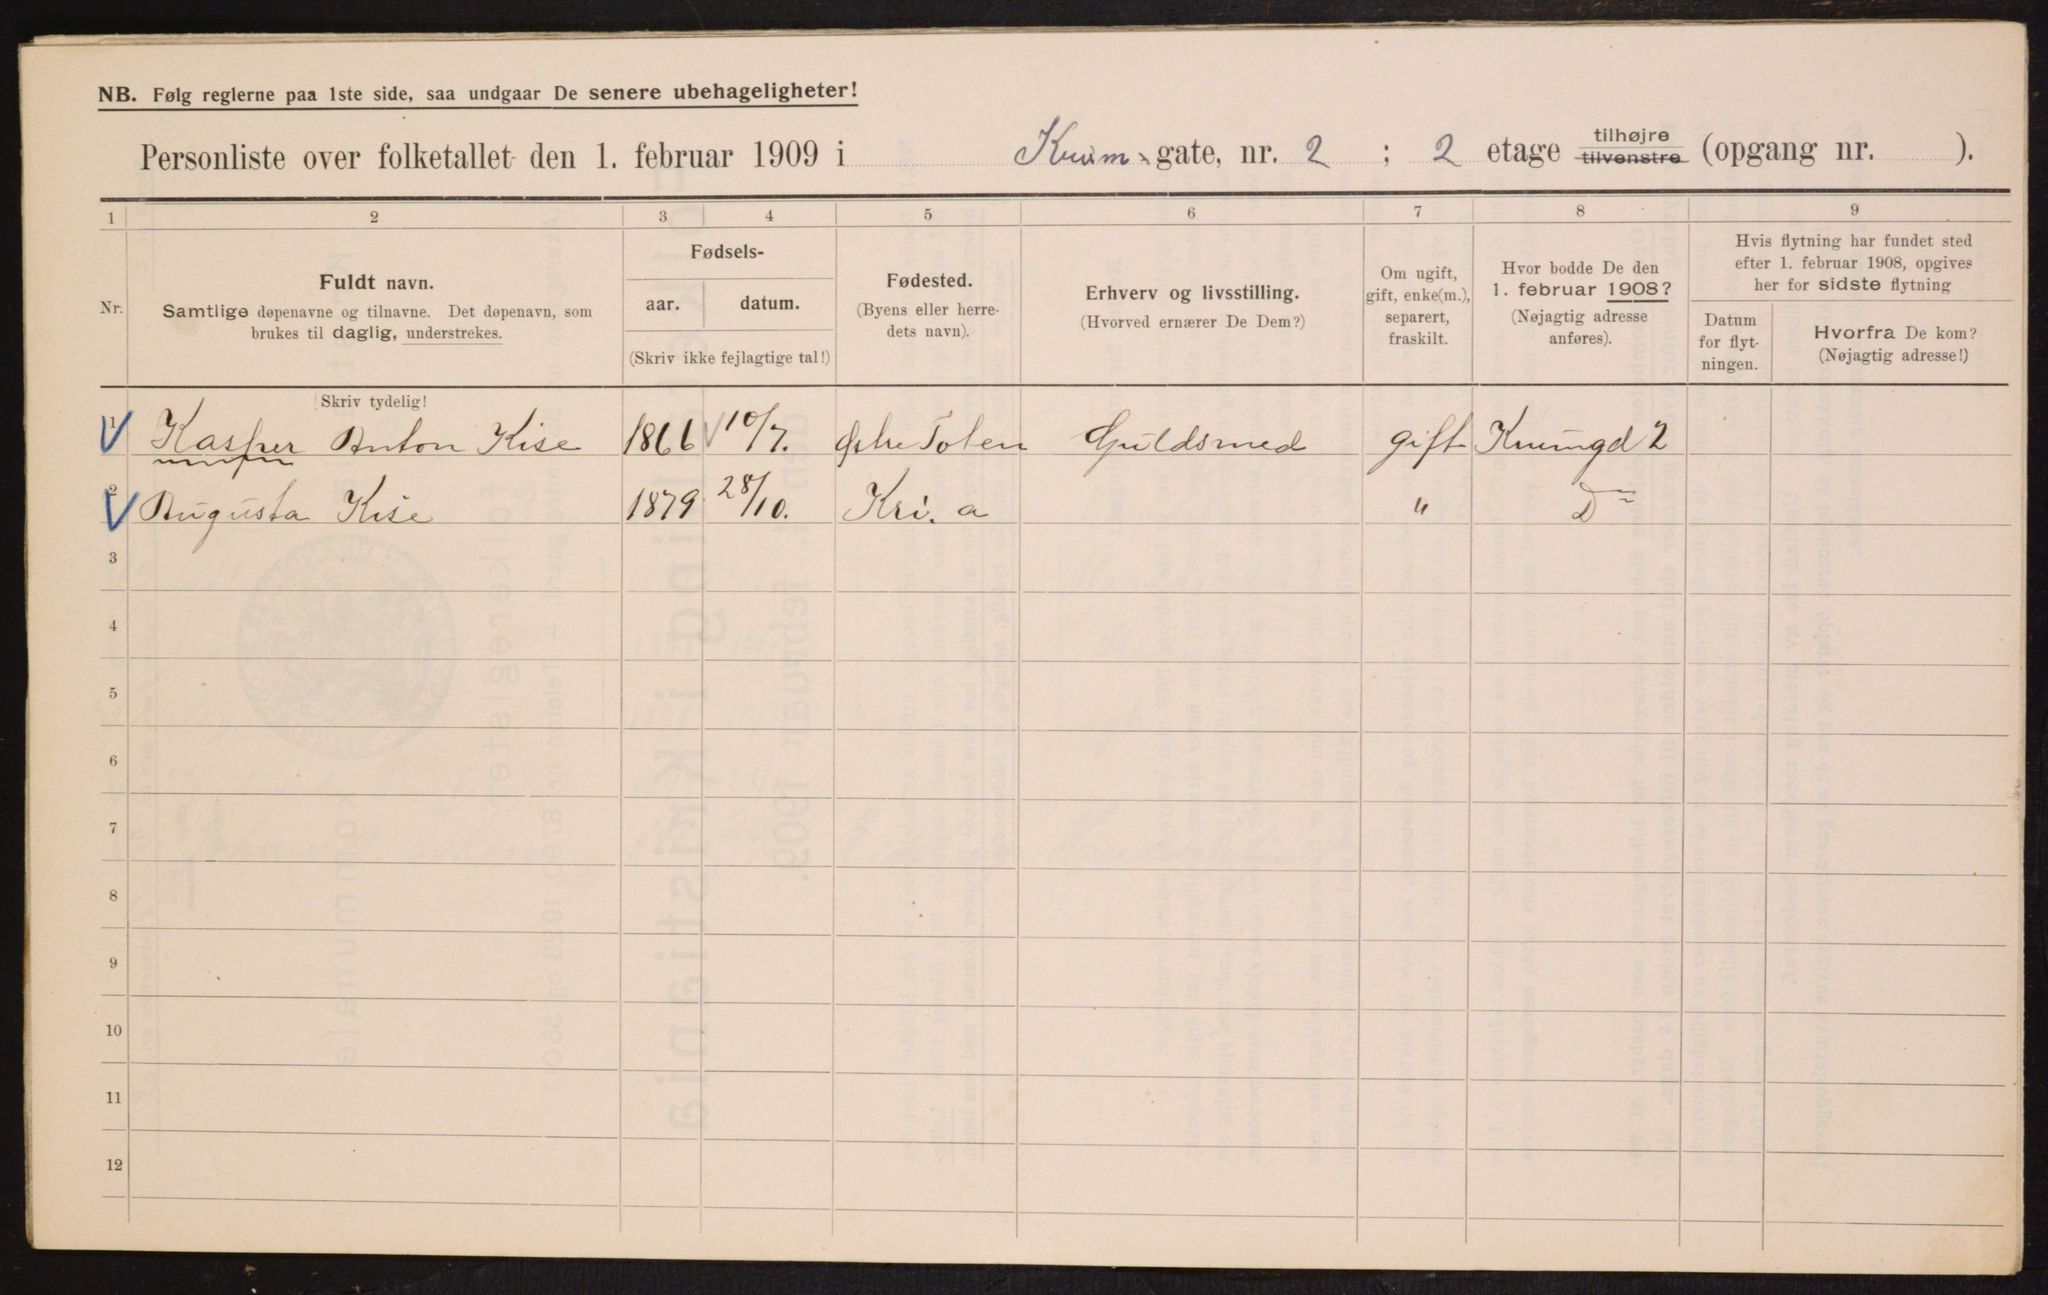 NB. Følg reglerne paa 1ste side, saa undgaar De senere ubehageligheter!
Personliste over folketallet den 1. februar 1909 i Kvim- gate, nr. 2 ; 2 etage tilhøjre tilvenstre (opgang nr. ).
1 2 3 4 5 6 7 8 9
Nr.
Fuldt navn.
Samtlige døpenavne og tilnavne. Det døpenavn, som
brukes til daglig, understrekes.
Skriv tydelig!
Fødsels-
aar. datum.
(Skriv ikke fejlagtige tal!)
Fødested.
(Byens eller herre-
dets navn).
Erhverv og livsstilling.
(Hvorved ernærer De Dem?)
Om ugift,
gift, enke(m.),
separert,
fraskilt.
Hvor bodde De den
1. februar 1908?
(Nøjagtig adresse
anføres).
Hvis flytning har fundet sted
efter 1. februar 1908, opgives
her for sidste flytning
Datum
for flyt-
ningen.
Hvorfra De kom?
(Nøjagtig adresse!)
1 Kasper Anton Kise 1866 10/7. Østre Toten Guldsmed gift 2
2 Augusta Kise 1879 28/10. Kri. a " D
3
4
5
6
7
8
9
10
11
12